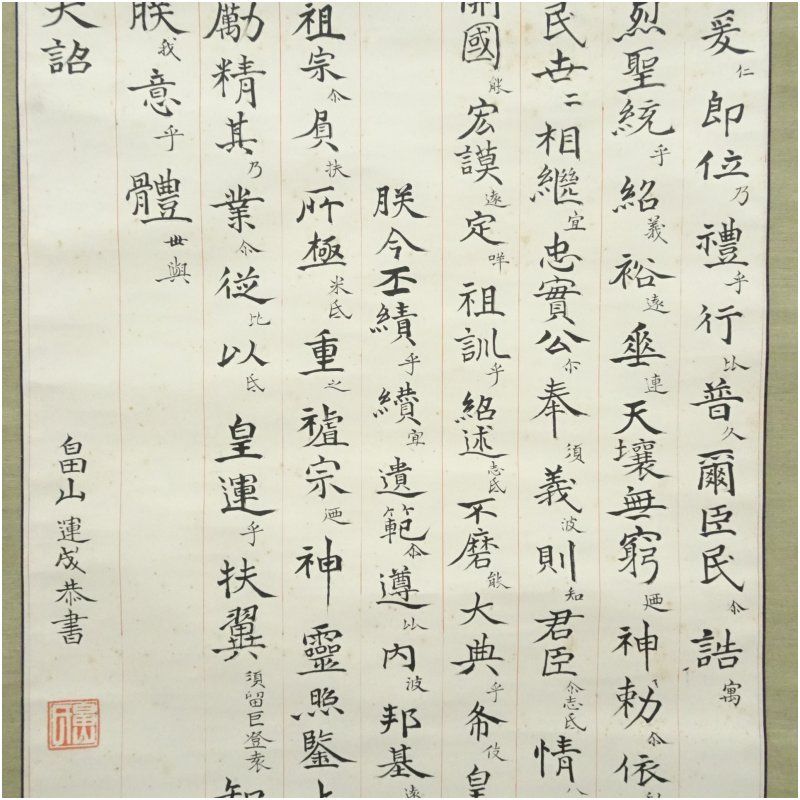 爰仁即位乃禮乎行比普久爾臣民尒誥寓
烈聖統乎紹義裕遠垂連天壤無窮廼神勅尒依
民世二相繼宜忠實公尒奉須義波則知君臣尒志氐情八
開國能宏謨遠定咩祖訓乎紹述志氐不磨能大典乎布伎皇
朕今丕績乎纘宜遺範尒遵比内波邦基遠
祖宗尒員扶所極米氐重之宗廼神靈照鑒上
勵精其乃業尒從比以氐皇運乎扶翼須留巨登袁知
朕我意乎體世與
詔
畠山運成恭書